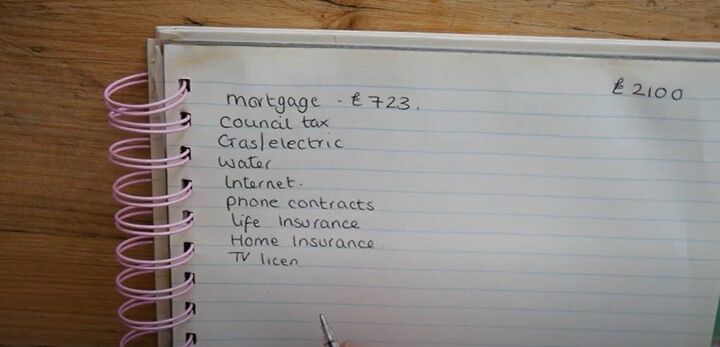 £2100
mortgage - £723.
Council tax
Gas/electric
Water
Internet.
phone contracts
Life Insurance
Home Insurance
TV licen